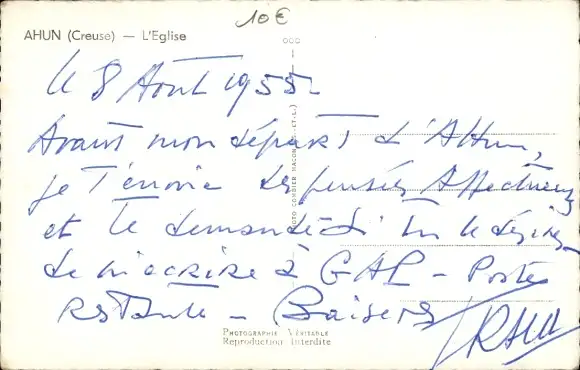 10€
AHUN (Creuse) — L'Eglise
le 8 Août 1955
Avant mon départ d'Ahun,
je t'envoie des pensées Affectueuses
et te demande si tu le désires
de m'écrire à GAP - Poste
Restante - Baisers
PHOTOGRAPHIE VÉRITABLE
Reproduction Interdite